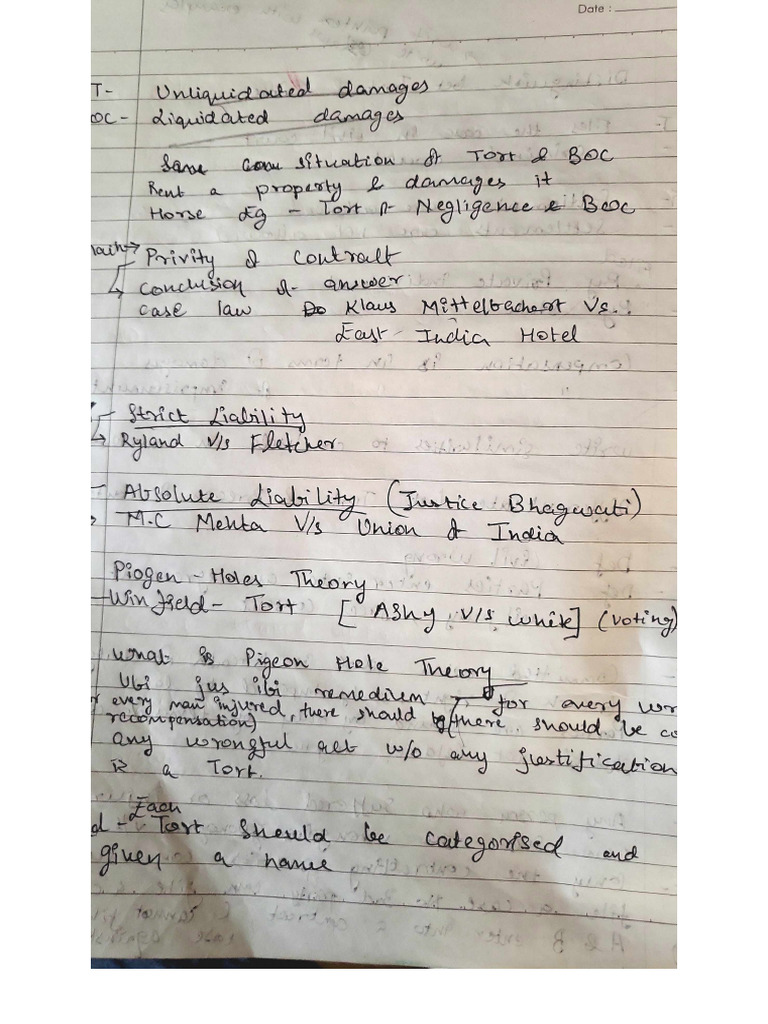 Date :
T- Unliquidated damages
OC - Liquidated damages
Same situation of Tort & BOC
Rent a property & damages it
Horse Eg - Tort of Negligence & BOC
Privity of contract
conclusion of answer
case law Klaus Mittelbachert Vs.
East India Hotel
Strict Liability
Ryland V/s Fletcher
- Absolute Liability (Justice Bhagwati)
M.C Mehta V/s Union of India
Piogen - Holes Theory
- Winfield - Tort [Ashy V/s white] (voting)
what is Pigeon Hole Theory
Ubi jus ibi remedium for every wr
every man injured, there should be (there should be co
recompensation)
any wrongful act w/o any justification
is a Tort.
Each
d - Tort should be categorised and
given a name